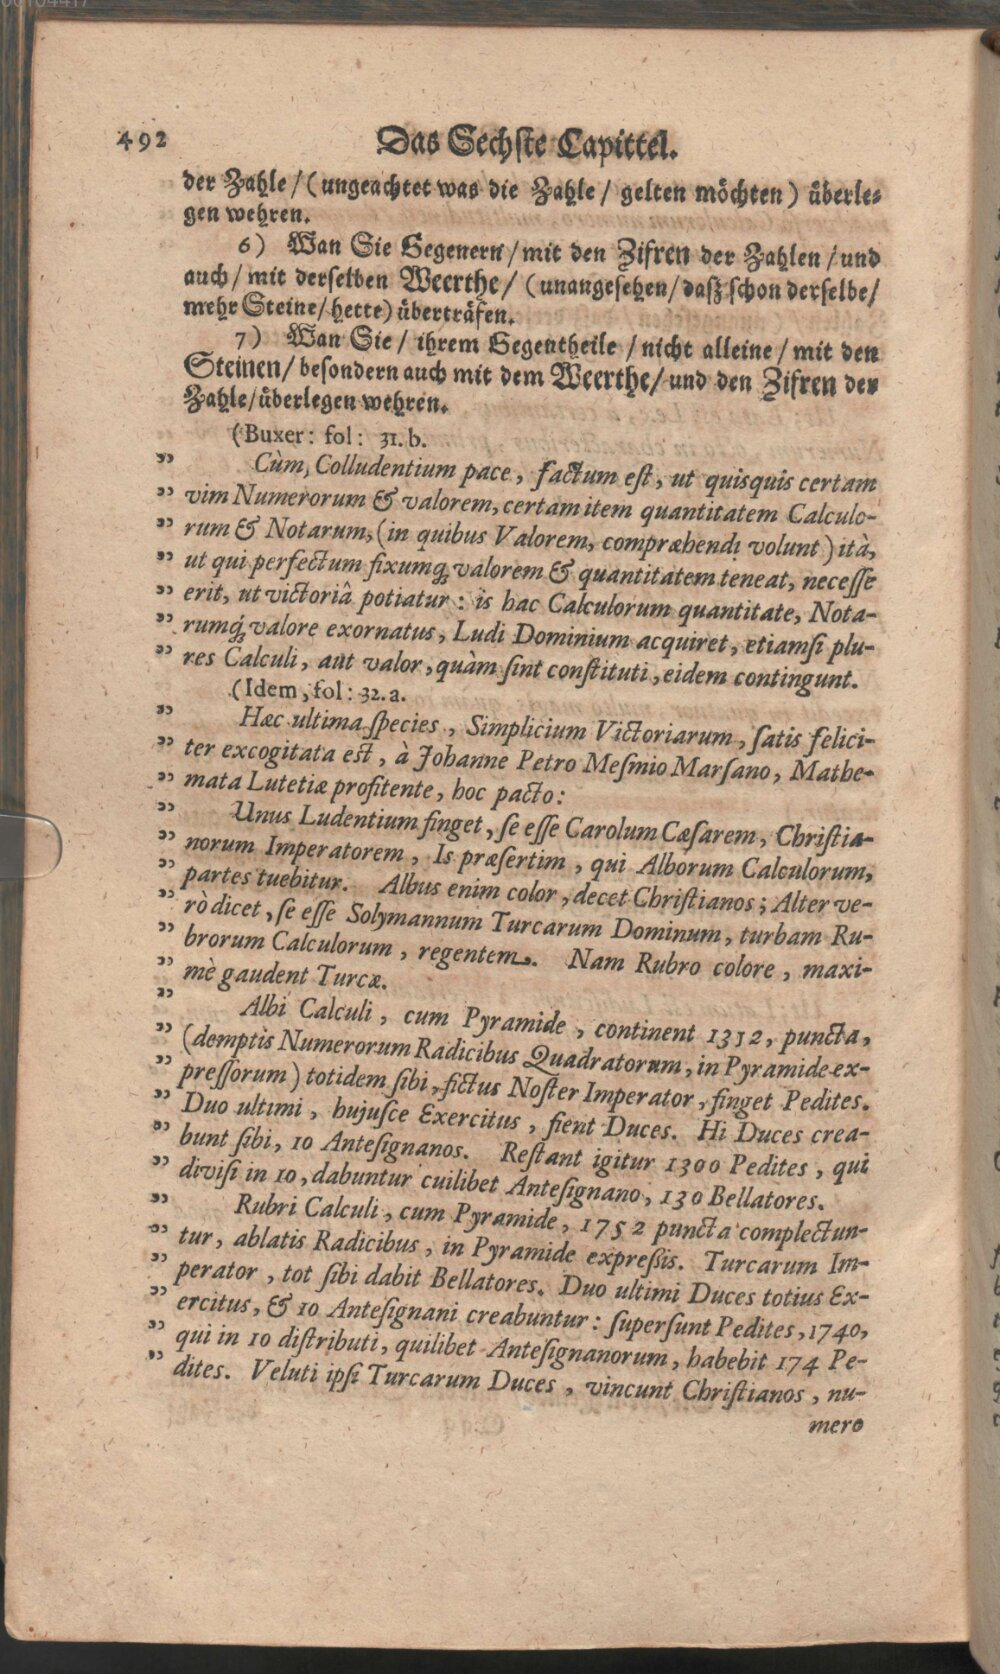 492 Das Sechste Capittel.
der Zahle/(ungeachtet was die Zahle/ gelten möchten) überle⸗
gen wehren.
6) Wan Sie Gegenern/mit den Zifren der Zahlen/und
auch/mit derselben Weerthe/ (unangesehen/daß schon derselbe/
mehr Steine/hette) überträfen.
7) Wan Sie/ ihrem Gegentheile /nicht alleine/mit den
Steinen/besondern auch mit dem Weerthe/und den Zifren der
Zahle/überlegen wehren.
(Buxer: fol: 31. b.
” Cùm, Colludentium pace, factum eſt, ut quisquis certam
” vim Numerorum & valorem, certam item quantitatem Calculo-
” rum & Notarum, (in quibus Valorem, compræhendi volunt) ità,
” ut qui perfectum fixumq́; valorem & quantitatem teneat, neceſſe
” erit, ut victoriâ potiatur: is hac Calculorum quantitate, Nota-
” rumq́; valore exornatus, Ludi Dominium acquiret, etiamſi plu-
” res Calculi, aut valor, quàm ſint conſtituti, eidem contingunt.
(Idem, fol: 32. a.
” Hæc ultima ſpecies, Simplicium Victoriarum, ſatis felici-
” ter excogitata eſt, à Johanne Petro Meſmio Marſano, Mathe-
” mata Lutetiæ profitente, hoc pacto:
” Unus Ludentium finget, ſe eſſe Carolum Cæſarem, Chriſtia-
” norum Imperatorem, Is præſertim, qui Alborum Calculorum,
” partes tuebitur. Albus enim color, decet Chriſtianos; Alter ve-
” rò dicet, ſe eſſe Solymannum Turcarum Dominum, turbam Ru-
” brorum Calculorum, regentem. Nam Rubro colore, maxi-
” mè gaudent Turcæ.
” Albi Calculi, cum Pyramide, continent 1312, puncta,
” (demptis Numerorum Radicibus Quadratorum, in Pyramide ex-
” preſſorum) totidem ſibi, fictus Noſter Imperator, finget Pedites.
” Duo ultimi, hujuſce Exercitus, fient Duces. Hi Duces crea-
” bunt ſibi, 10 Anteſignanos. Reſtant igitur 1300 Pedites, qui
” diviſi in 10, dabuntur cuilibet Anteſignano, 130 Bellatores.
” Rubri Calculi, cum Pyramide, 1752 puncta complectun-
” tur, ablatis Radicibus, in Pyramide expreſſis. Turcarum Im-
” perator, tot ſibi dabit Bellatores. Duo ultimi Duces totius Ex-
” ercitus, & 10 Anteſignani creabuntur: ſuperſunt Pedites, 1740,
” qui in 10 diſtributi, quilibet Anteſignanorum, habebit 174 Pe-
” dites. Veluti ipſi Turcarum Duces, vincunt Chriſtianos, nu-
mero